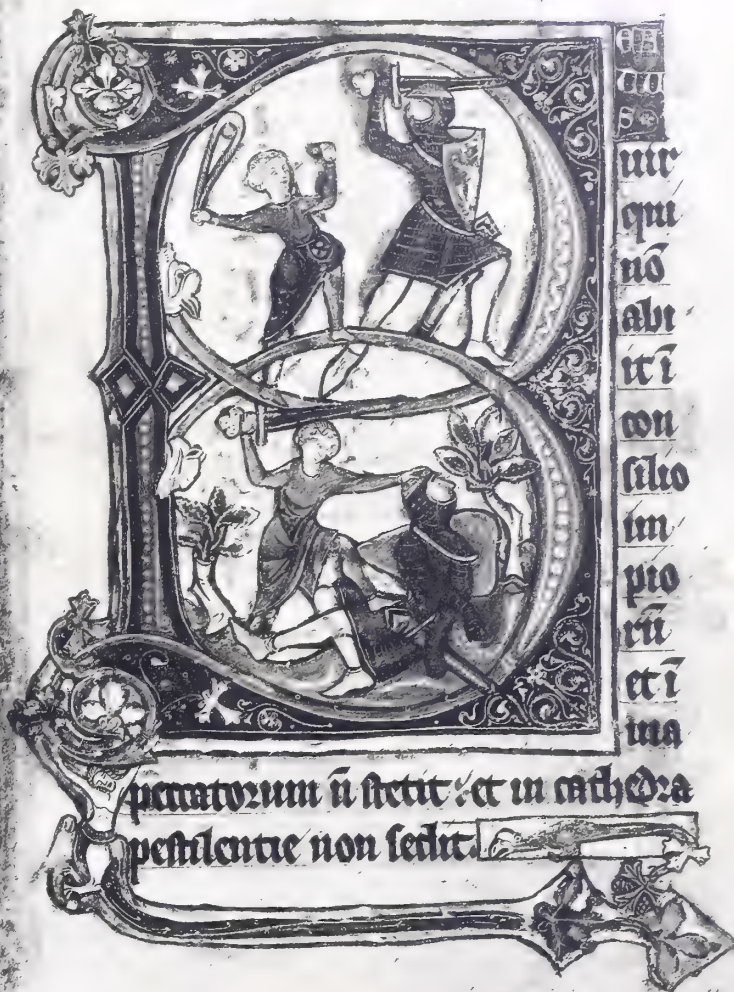 B
EA
TU
S
uir
qui
nō
abi
it ī
con
silio
im
pio
rū
et ī
uia
peccatorum ñ stetit: et in cathedra
pestilentie non sedit.